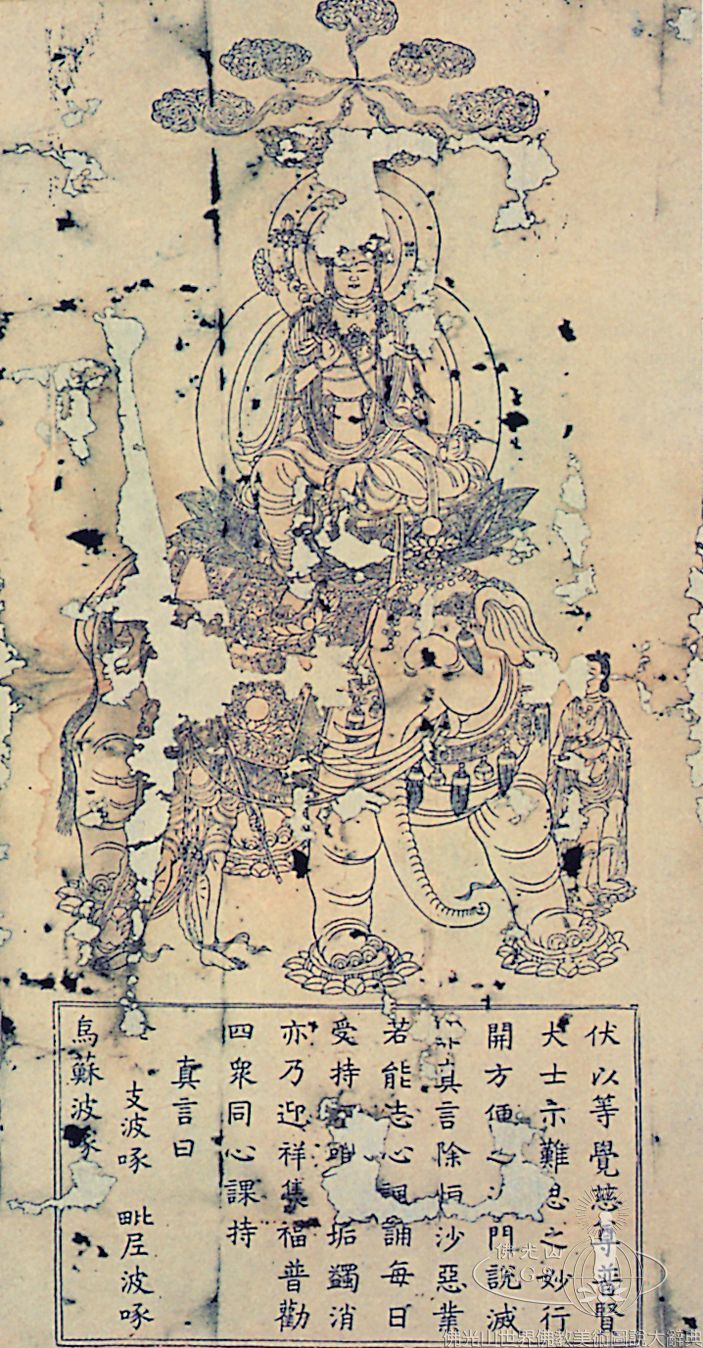 伏以等覺慈尊普賢
大士示難思之妙行
開方便之門說滅
真言除恒沙惡業
若能志心諷誦每日
受持垢蠲消
亦乃迎祥集福普勸
四衆同心課持
真言曰
支波啄 毗尼波啄
烏蘇波啄
佛光山
佛光山世界佛教美術圖說大辭典